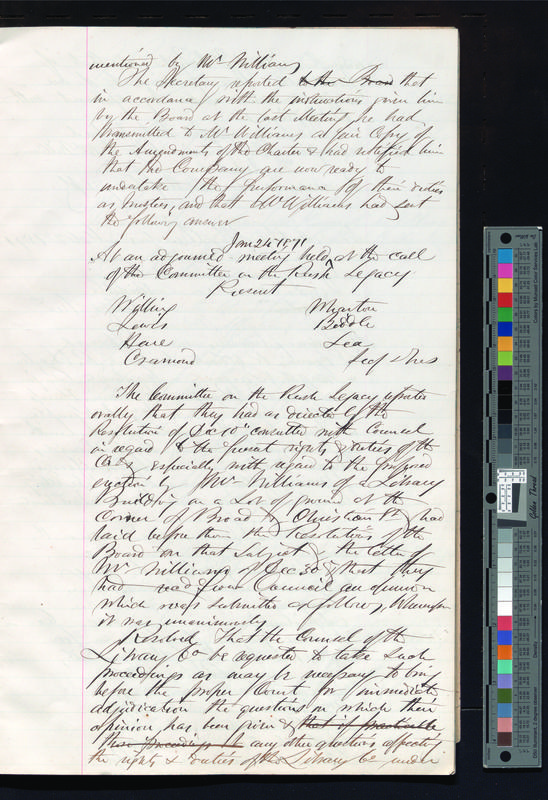 mentioned by Mr Williams
The Secretary reported to the Board that
in accordance with the instructions given him
by the Board at the last Meeting he had
transmitted to Mr Williams a fair Copy of
the Amendments of the Charter & had notified him
that the Company are now ready to
undertake the performance of their duties
as trustees, and that Mr Williams had sent
the following answer
Jan 24 1871
At an adjourned meeting held at the call
of the Committee on the Rush Legacy
Present
Willing
Lewis
Hare
Cramond
Biddle
Lea
The Committee on the Rush Legacy reported
orally that they had as directed by the
Resolution of Dec 10" consulted with Counsel
in regard to the present rights & duties of the
Co & especially with regard to the proposed
erection by Mr Williams of a Library
Building on a Lot of ground at the
Corner of Broad & Christian St & had
laid before them the Resolutions of the
Board on that subject & the letter of
Mr Williams of Dec 30 & that they
had recd from Counsel an opinion
which was submitted as follows, Whereupon
it was unanimously
Resolved That the Counsel of the
Library Co be requested to take such
proceedings as may be necessary to bring
before the proper Court for immediate
adjudication the questions on which their
opinion has been given & that if practicable
those proceedings any other questions affecting
the rights & duties of the Library Co under